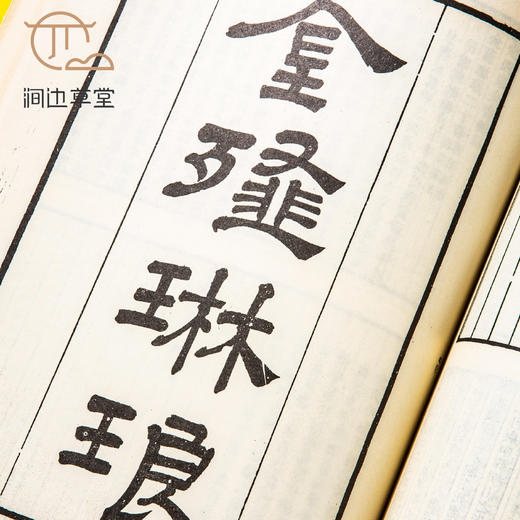 涧边草堂
金
䪥
琳
琅